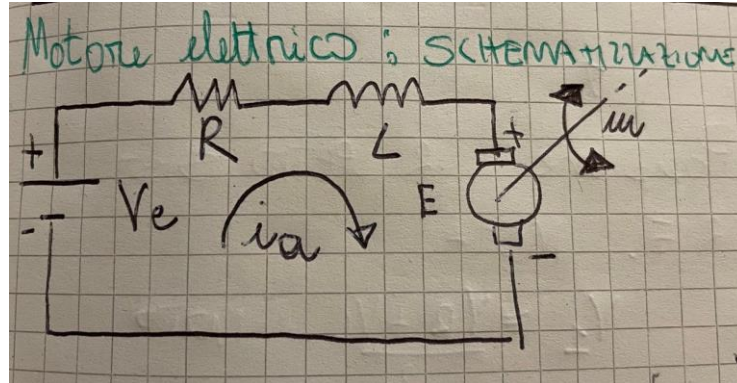 Motore elettrico : SCHEMATIZZAZIONE
R
L
+
E
+
-
Ve
ia
-